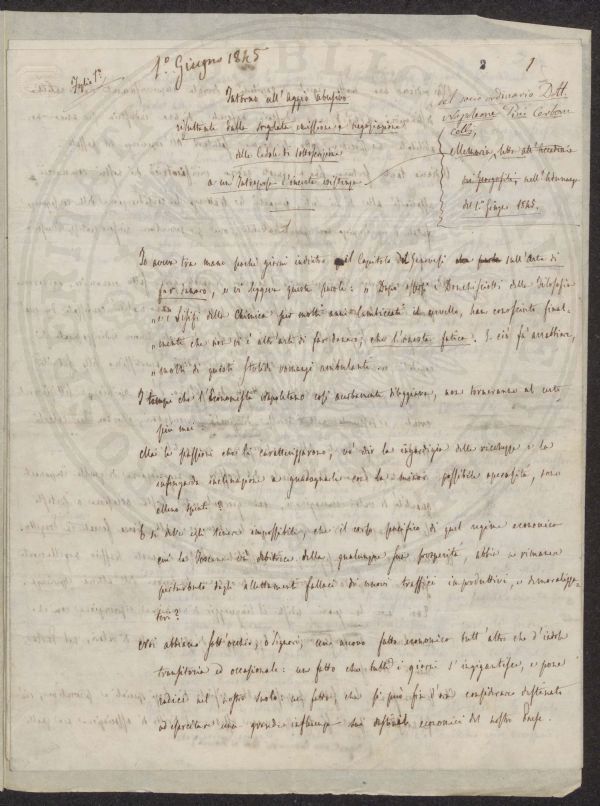 Foglio 1º
1º Giugno 1845
2
1
Intorno all'Aggio abusivo
resultante dalla sregolata emissione e negoziazione
delle Cedole di soscrizione
a un' Intrapresa
del socio ordinario Dott.
Napoleone Pini
Memoria, letta all'Accademia
dei Georgofili, nell'Adunanza
del 1º Giugno 1845.
Io avevo tra mano pochi giorni indietro il Capitolo del Genovesi sull'Arte di
far danaro, e vi leggeva queste parole: „ Dopo
„ Sisifi della Chimica per molti anni lambiccati il cervello, han conosciuto final-
„ mente che non vi è altr'arte di far danaro, che l'onesta fatica. E ciò fà arrestare,
„ molti di questi stolidi romanzi ambulanti...
I tempi che l'Economista Napoletano così acerbamente dileggiava, non torneranno al certo
più mai
Ma le passioni che li caratterizzarono, vo' dir la ingordigia delle ricchezze e la
infingarda inclinazione a guadagnarle con la minor possibile operosità, sono
elleno spente?
E si deve egli tenere impossibile, che il corso pacifico di quel regime economico
cui la Toscana và debitrice della qualunque sua prosperità, abbia a rimanere
perturbato dagli allettamenti fallaci di nuovi traffici improduttivi, e demoralizza-
tori?
Noi abbiamo sott'occhio, o Signori, un nuovo fatto economico tutt'altro che d'indole
transitoria ed occasionale: un fatto che tutti i giorni s'ingigantisce, e pone
radici nel nostro suolo: un fatto, che si può fin d'ora considerare destinato
ad esercitare una grande influenza sui destini economici del nostro Paese.